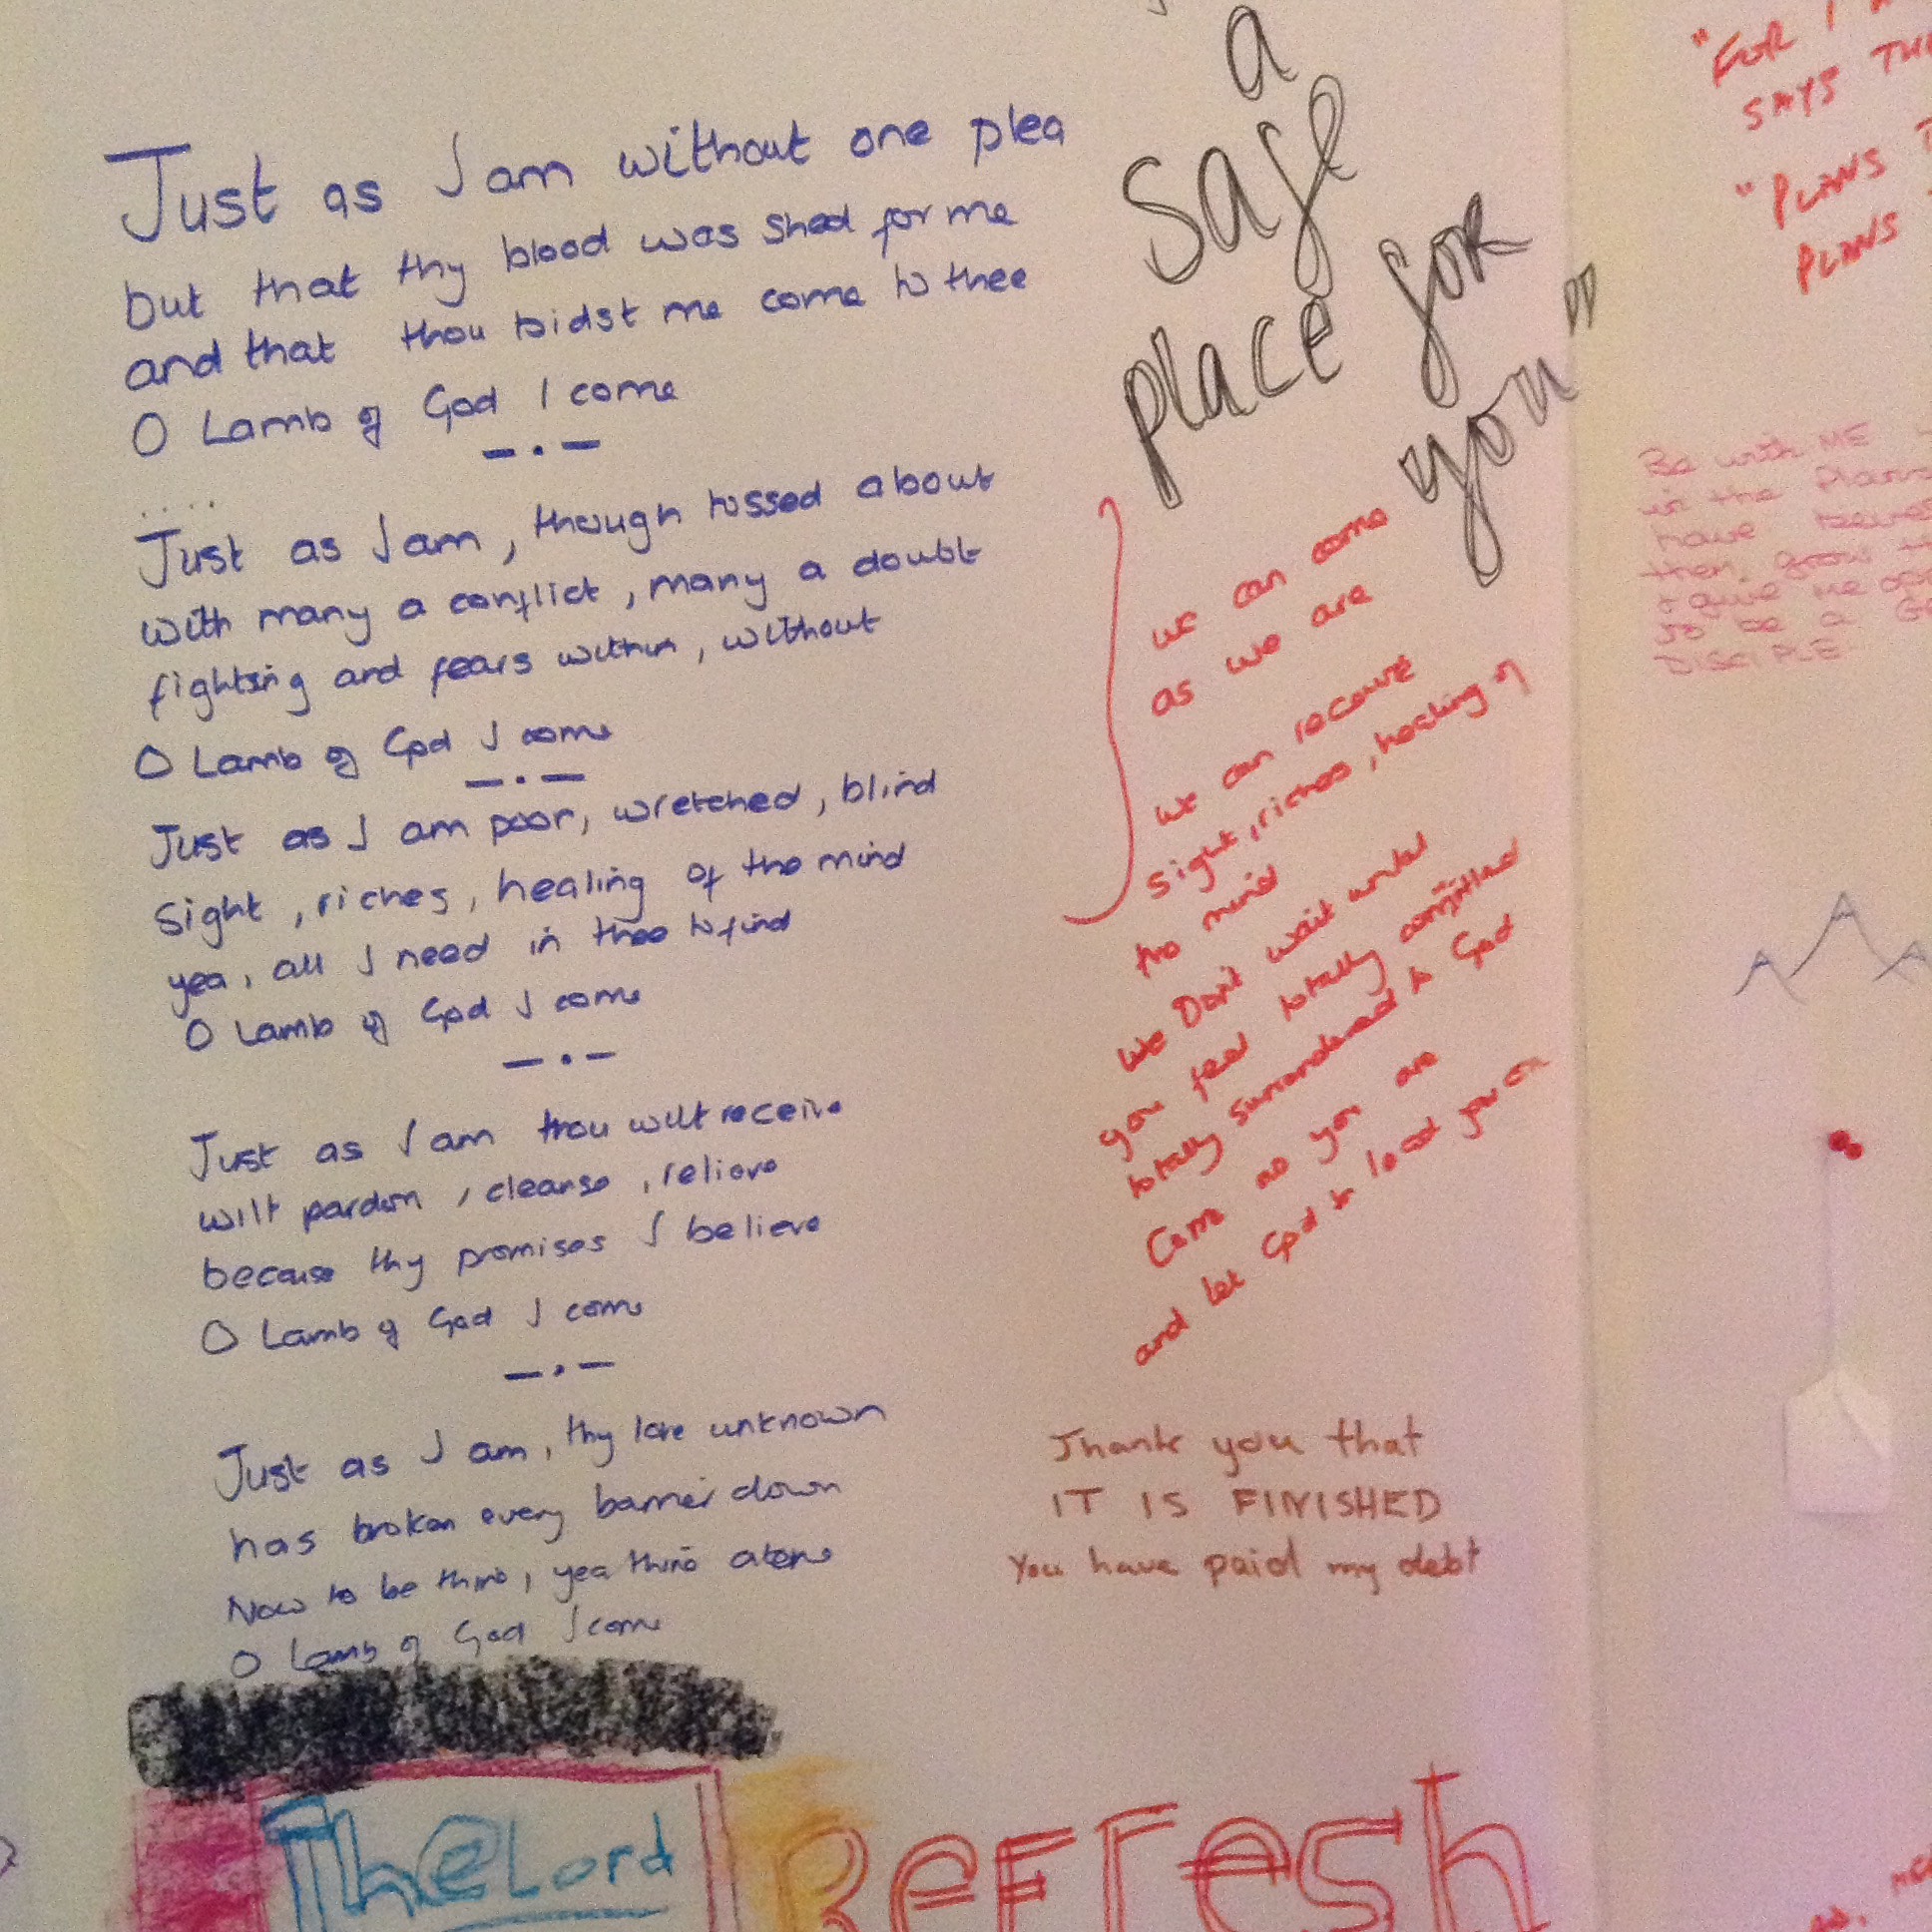 Just as I am without one plea
but that thy blood was shed for me
and that thou bidst me come to thee
O Lamb of God I come
Just as I am, though tossed about
with many a conflict, many a doubt
fighting and fears within, without
O Lamb of God I come
Just as I am poor, wretched, blind
Sight, riches, healing of the mind
yea, all I need in thee to find
O Lamb of God I come
Just as I am thou wilt receive
wilt pardon, cleanse, relieve
because thy promises I believe
O Lamb of God I come
Just as I am, thy love unknown
has broken every barrier down
Now to be thine, yea thine alone
O Lamb of God I come
a
safe
place for
you"
we can come
as we are
we can receive
sight, riches, healing of
the mind
We Don't wait until
you feel totally committed
totally surrendered to God
Come as you are
and let God to lead you on
Thank you that
IT IS FINISHED
You have paid my debt
The Lord
Refresh
"FOR I
SAYS
"PLANS
PLANS
Be with ME
in the
have
then, grow
to be a
DISCIPLE